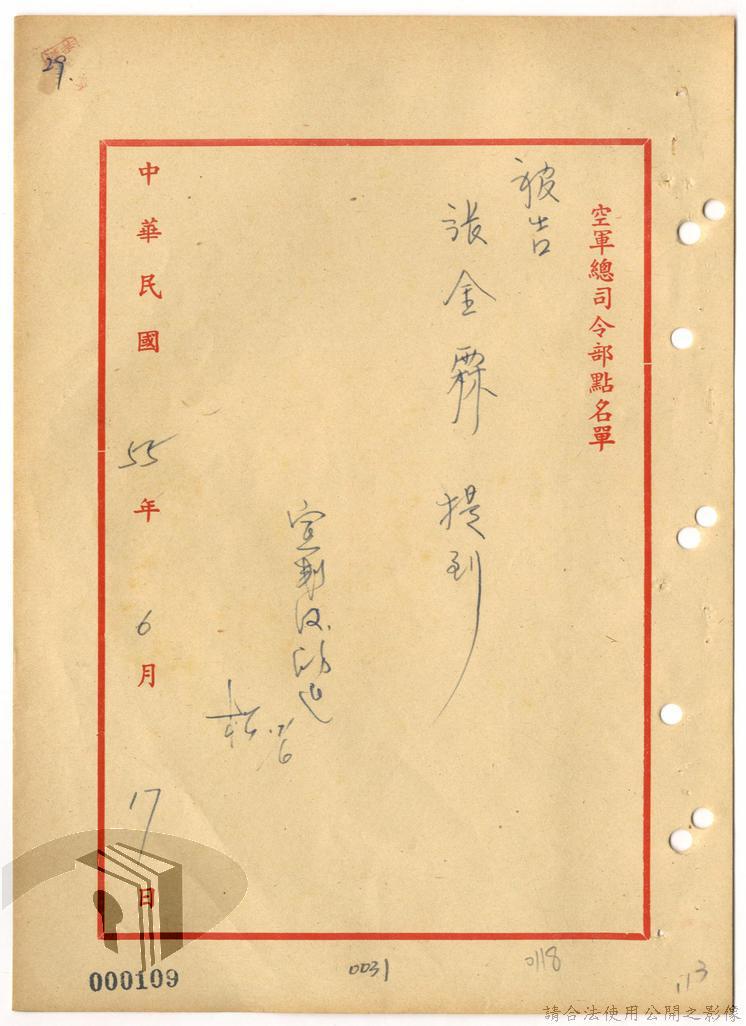 空軍總司令部點名單
被告
張金霖 提到
宣判後仍還
中華民國 55 年 6 月 17 日
29.
000109
0031
0118
113
請合法使用公開之影像